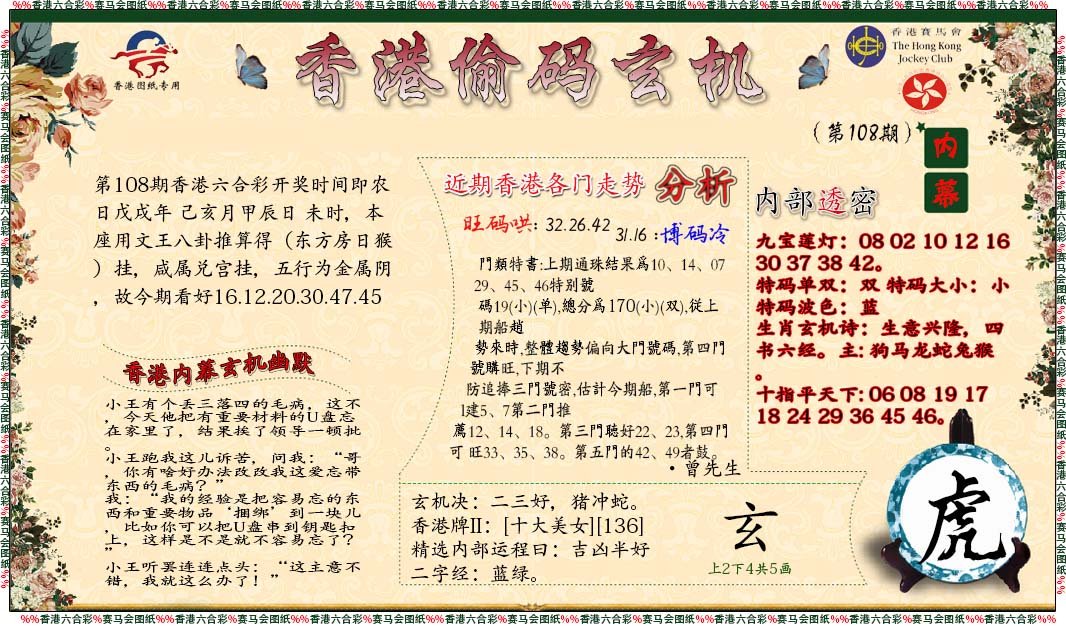 %%香港六合彩%赛马会图纸%%香港六合彩%赛马会图纸%%香港六合彩%赛马会图纸%%香港六合彩%赛马会图纸%%香港六合彩%赛马会图纸%%香港六合彩%赛马会图纸%%香港六合彩%%
香港图纸专用
香港偷码玄机
香港賽馬會
The Hong Kong
Jockey Club
（第108期）
内
幕
第108期香港六合彩开奖时间即农
日戊戌年 己亥月甲辰日 未时，本
座用文王八卦推算得（东方房日猴
）挂，咸属兑宫挂，五行为金属阴
，故今期看好16.12.20.30.47.45
香港内幕玄机幽默
小王有个丢三落四的毛病，这不
，今天他把有重要材料的U盘忘
在家里了，结果挨了领导一顿批
。
小王跑我这儿诉苦，问我：“哥
，你有啥好办法改改我这爱忘带
东西的毛病？”
我：“我的经验是把容易忘的东
西和重要物品‘捆绑’到一块儿
，比如你可以把U盘串到钥匙扣
上，这样是不是就不容易忘了？
”
小王听罢连连点头：“这主意不
错，我就这么办了！”
近期香港各门走势 分析
旺码哄: 32.26.42 31.16 :博码冷
門類特書:上期通珠結果爲10、14、07
29、45、46特别號
碼19(小)(单),總分爲170(小)(双),從上
期船趙
勢來時,整體趨勢偏向大門號碼,第四門
號購旺,下期不
防追捧三門號密,估計今期船,第一門可
1建5、7第二門推
薦12、14、18。第三門聽好22、23,第四門
可 旺33、35、38。第五門的42、49者鼓。
·曾先生
玄机决：二三好，猪冲蛇。
香港牌II：[十大美女][136]
精选内部运程曰：吉凶半好
二字经：蓝绿。
玄
上2下4共5画
内部透密
九宝莲灯：08 02 10 12 16
30 37 38 42。
特码单双：双 特码大小：小
特码波色：蓝
生肖玄机诗：生意兴隆，四
书六经。主: 狗马龙蛇兔猴
。
十指平天下: 06 08 19 17
18 24 29 36 45 46。
虎
%%香港六合彩%赛马会图纸%%香港六合彩%赛马会图纸%%香港六合彩%赛马会图纸%%香港六合彩%赛马会图纸%%香港六合彩%赛马会图纸%%香港六合彩%赛马会图纸%%香港六合彩%%